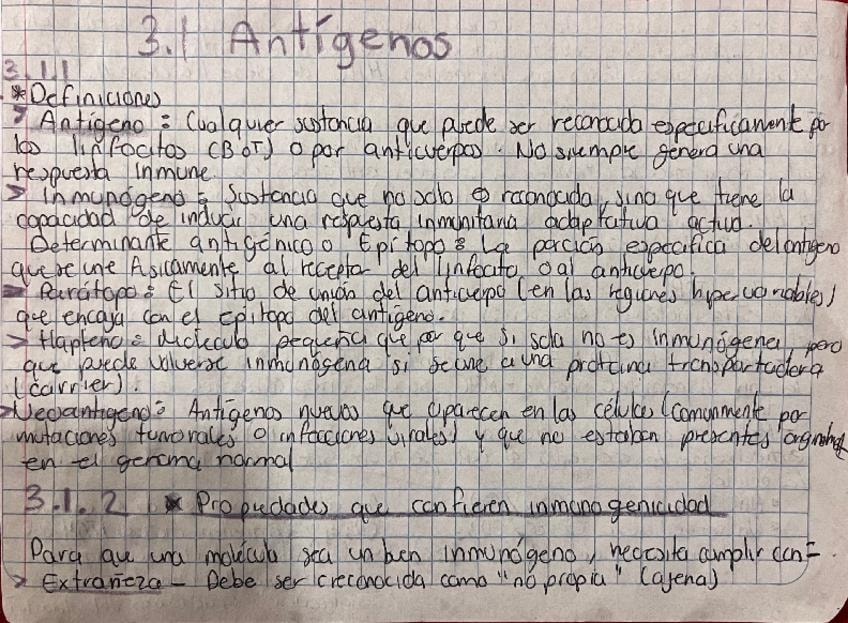 3.1 Antígenos
3.1.1
* Definiciones
> Antígeno = Cualquier sustancia que puede ser reconocida especificamente por
los linfocitos (B o T) o por anticuerpos. No siempre genera una
respuesta inmune.
> Inmunógeno = Sustancia que no solo es reconocida, sino que tiene la
capacidad de inducir una respuesta inmunitaria adaptativa activa.
Determinante antigénico o Epítopo = La porción especifica del antigeno
que se une físicamente al receptor del linfocito o al anticuerpo.
> Parátopo = El sitio de unión del anticuerpo (en las regiones hipervariables)
que encaja con el epítopo del antígeno.
> Hapteno = molécula pequeña que por que si sola no es inmunógena, pero
que puede volverse inmunógena si se une a una proteína transportadora
(carrier).
> Neoantigeno = Antígenos nuevos que aparecen en las células (comunmente por
mutaciones tumorales o infecciones virales) y que no estaban presentes
en el genoma normal
3.1.2 * Propiedades que confieren inmunogenicidad
Para que una molécula sea un buen inmunógeno, necesita cumplir con =
> Extrañeza - Debe ser creconocida como "no propia" (ajena)